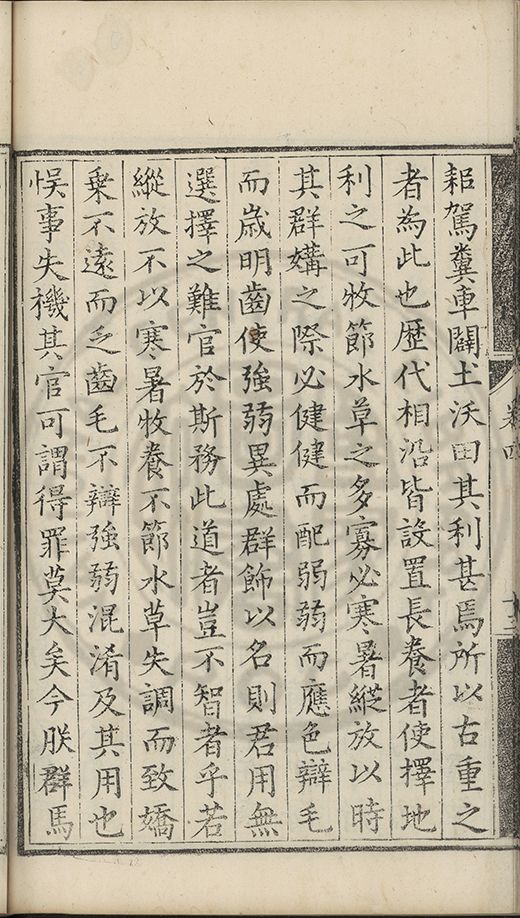 耜駕糞車闢土沃田其利甚焉所以古重之
者為此也歴代相沿皆設置長養者使擇地
利之可牧節水草之多寡必寒暑縱放以時
其群媾之際必健健而配弱弱而應色辯毛
而歳明齒使強弱異處群飾以名則君用無
選擇之難官於斯務此道者豈不智者乎若
縱放不以寒暑牧養不節水草失調而致嬌
乗不遠而乏齒毛不辯強弱混淆及其用也
悞事失機其官可謂得罪莫大矣今朕群馬
卷四
十三